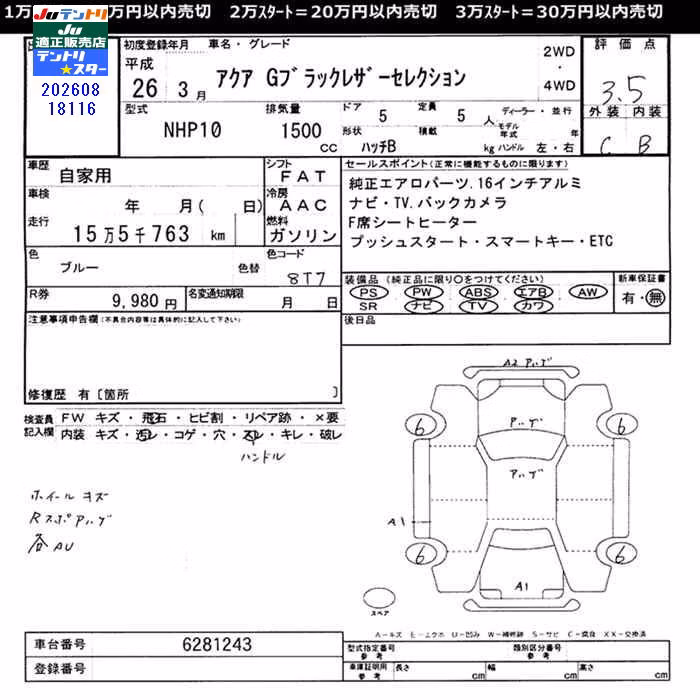 1万 万円以内売切 2万ｽﾀｰﾄ＝20万円以内売切 3万ｽﾀｰﾄ＝30万円以内売切
Juテントリ
Ju
適正販売店
テントリ
★スター
202608
18116
初度登録年月 車名・グレード
平成
26 3月
アクア Gブラックレザーセレクション
2WD
・
4WD
評価点
3.5
外装 内装
C B
型式
NHP10
排気量
1500
cc
ドア 5
定員 5 人
形状 ハッチB
積載 kg
ディーラー・並行
モデル年式 年
ハンドル 左・右
車歴
自家用
シフト
FAT
車検
年 月( 日)
冷房
AAC
走行
15万5千763 km
燃料
ガソリン
色
ブルー
色替
色コード
8T7
R券
9,980円
名変通知期限
月 日
セールスポイント(正常に機能するものに限ります)
純正エアロパーツ.16インチアルミ
ナビ・TV.バックカメラ
F席シートヒーター
プッシュスタート・スマートキー・ETC
装備品(純正品に限り○をつけてください)
PS PW ABS エアB AW
SR ナビ TV カワ
新車保証書
有・無
後日品
注意事項申告欄(不具合内容等は具体的に記入して下さい)
修復歴 有〔箇所 〕
検査員
記入欄
FW キズ・飛石・ヒビ割・リペア跡・×要
内装 キズ・汚レ・コゲ・穴・スレ・キレ・破レ
ハンドル
ホイールキズ
Rスポアハゲ
各AU
A2 アハゲ
アハゲ
アハゲ
6
6
6
6
A1
A1
スペア
A－キズ E－エクボ U－凹み W－補修跡 S－サビ C－腐食 XX－交換済
車台番号
6281243
登録番号
型式指定番号
参考
類別区分番号
参考
車庫証明用
参考
長さ cm
幅 cm
高さ cm